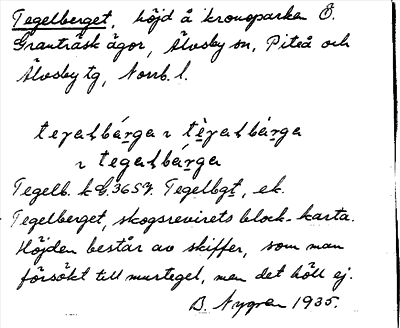 Tegelberget, höjd å kronoparken Ö.
Granträsk ägor, Älvsby sn, Piteå och
Älvsby tg, Norrb. l.
teγaḷbárga ɿ tèγaḷbárga
ɿ tegaḷbárga
Tegelb. k Tegelbgt, ek.
Tegelberget, skogsrevirets block-karta.
Höjden består av skiffer, som man
försökt till murtegel, men det höll ej.
B. Nygren 1935.